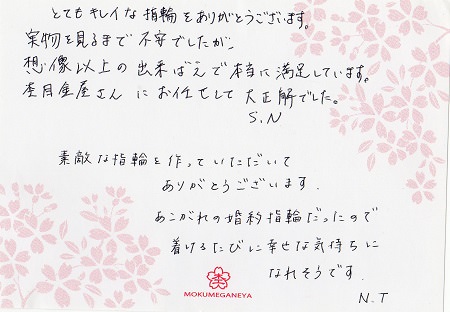 とてもキレイな指輪をありがとうございます。
実物を見るまで不安でしたが、
想像以上の出来ばえで本当に満足しています。
杢目金屋さんにお任せして大正解でした。
S.N
素敵な指輪を作っていただいて
ありがとうございます.
あこがれの婚約指輪だったので
着けるたびに幸せな気持ちに
なれそうです.
N.T
MOKUMEGANEYA